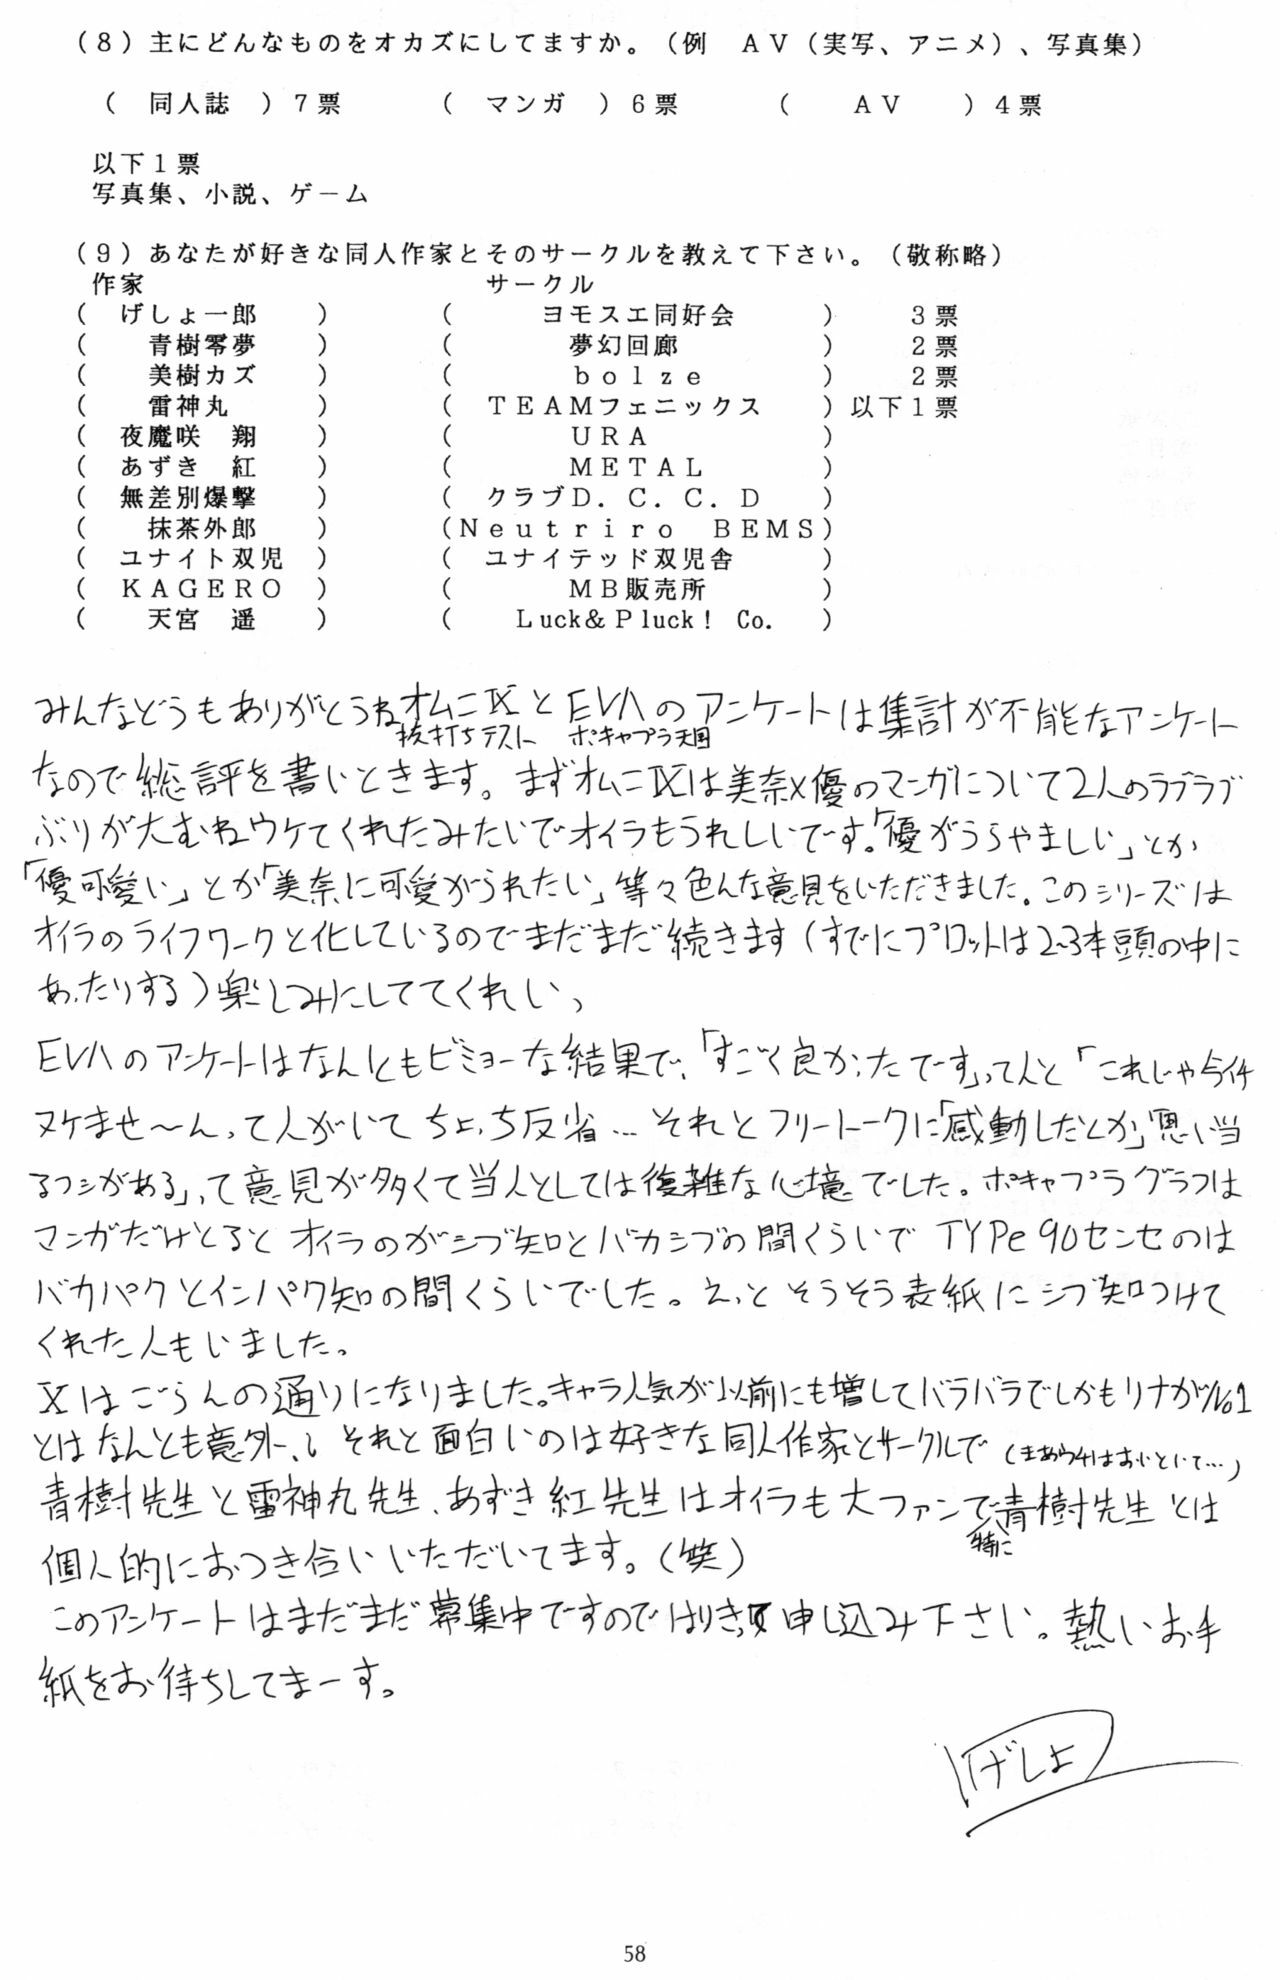 (8)主にどんなものをオカズにしてますか。(例　ＡＶ(実写、アニメ)、写真集)
(　同人誌　)７票　　(　マンガ　)６票　　(　ＡＶ　)４票
以下１票
写真集、小説、ゲーム
(9)あなたが好きな同人作家とそのサークルを教えて下さい。(敬称略)
作家　　サークル
(　げしょ一郎　)　(　ヨモスエ同好会　)　３票
(　青樹零夢　)　(　夢幻回廊　)　２票
(　美樹カズ　)　(　ｂｏｌｚｅ　)　２票
(　雷神丸　)　(　ＴＥＡＭフェニックス　)　以下１票
(　夜魔咲　翔　)　(　ＵＲＡ　)
(　あずき　紅　)　(　ＭＥＴＡＬ　)
(　無差別爆撃　)　(　クラブＤ．Ｃ．Ｃ．Ｄ　)
(　抹茶外郎　)　(Ｎｅｕｔｒｉｒｏ　ＢＥＭＳ)
(　ユナイト双児　)　(　ユナイテッド双児舎　)
(　ＫＡＧＥＲＯ　)　(　ＭＢ販売所　)
(　天宮　遥　)　(　Ｌuck&Ｐluck！ Co.　)
みんなどうもありがとうねオムニⅨとEVAのアンケートは集計が不能なアンケート
抜打ちテスト　ボキャブラ天国
なので総評を書いときます。まずオムニⅨは美奈×優のマンガについて2人のラブラブ
ぶりが大むねウケてくれたみたいでオイラもうれしいです。「優がうらやましい」とか
「優可愛い」とか「美奈に可愛がられたい」等々色んな意見をいただきました。このシリーズは
オイラのライフワークと化しているのでまだまだ続きます(すでにプロットは2~3本頭の中に
あったりする)楽しみにしててくれい、
EVAのアンケートはなんともビミョーな結果で、「すごく良かったです」って人と「これじゃ今イチ
ヌケませ〜ん」って人がいてちょっち反省… それとフリートークに「感動したとか」「思い当
るフシがある」って意見が多くて当人としては復雑な心境でした。ボキャブラグラフは
マンガだけとるとオイラのがシブ知とバカシブの間くらいで TYPe90センセのは
バカパクとインパク知の間くらいでした。えっと そうそう表紙にシブ知つけて
くれた人もいました。
Ⅹはごらんの通りになりました。キャラ人気が以前にも増してバラバラでしかもリナがNo1
とはなんとも意外、、それと面白いのは好きな同人作家とサークルで (まあウチはおいといて…)
青樹先生と雷神丸先生、あずき紅先生はオイラも大ファンで青樹先生とは
特に
個人的におつき合いいただいてます。(笑)
このアンケートはまだまだ募集中ですのではりきって申し込み下さい。熱いお手
紙をお待ちしてまーす。
げしょ
58